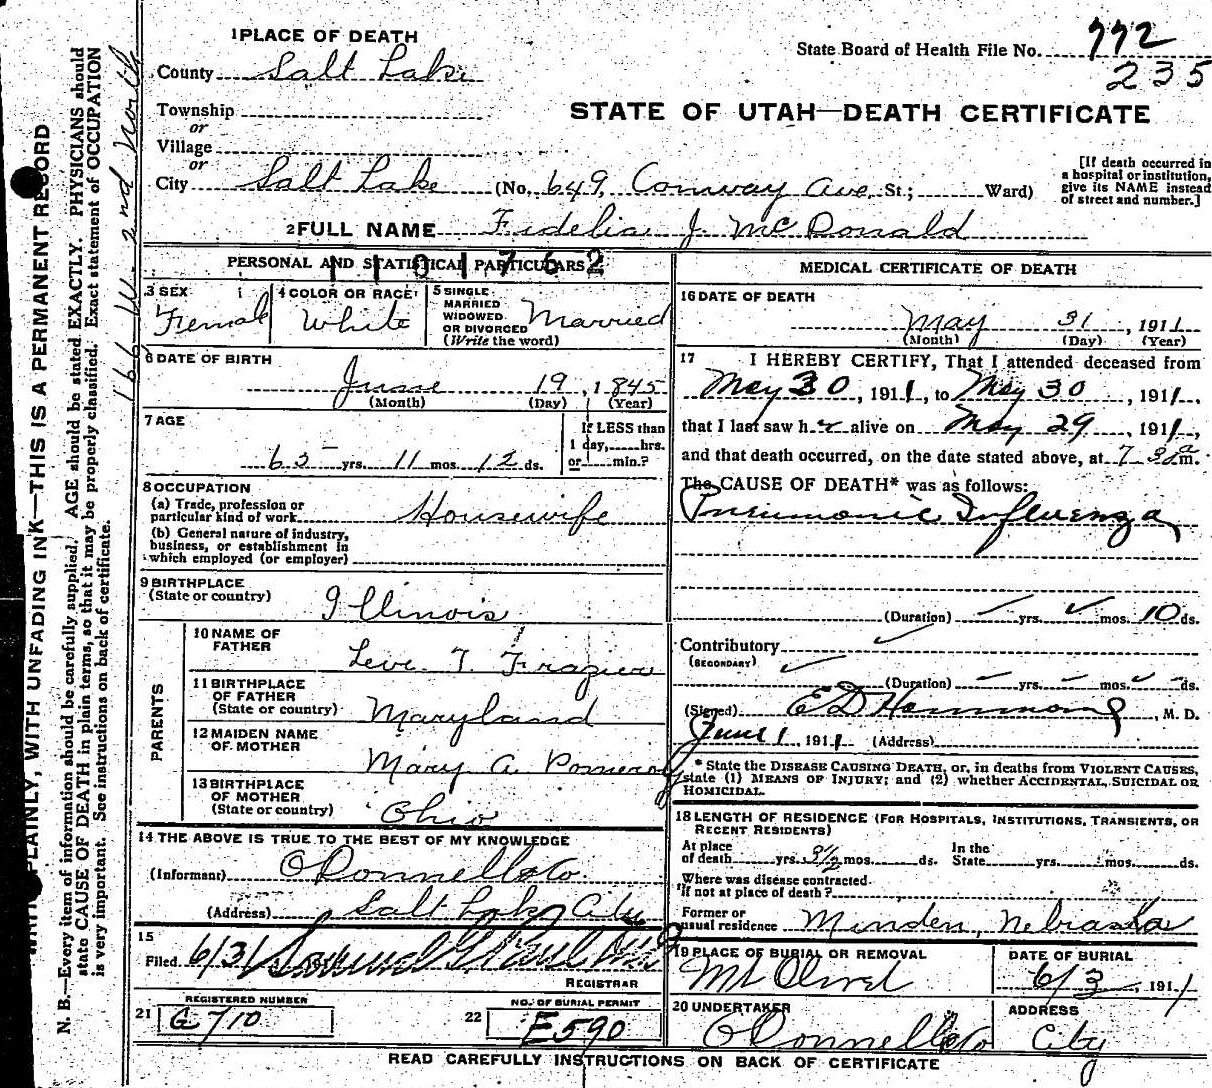 1 PLACE OF DEATH
County Salt Lake
Township
or
Village
or
City Salt Lake (No. 649 Conway Ave. St.; Ward)
State Board of Health File No. 772
235
STATE OF UTAH—DEATH CERTIFICATE
[If death occurred in
a hospital or institution,
give its NAME instead
of street and number.]
2 FULL NAME Fidelia J. McDonald
PERSONAL AND STATISTICAL PARTICULARS
1101762
3 SEX
Female
4 COLOR OR RACE
White
5 SINGLE
MARRIED
WIDOWED
OR DIVORCED
(Write the word)
Married
6 DATE OF BIRTH
June 19, 1845
(Month) (Day) (Year)
7 AGE
65 yrs. 11 mos. 12 ds.
If LESS than
1 day, hrs.
or min.?
8 OCCUPATION
(a) Trade, profession or
particular kind of work Housewife
(b) General nature of industry,
business, or establishment in
which employed (or employer)
9 BIRTHPLACE
(State or country) Illinois
PARENTS
10 NAME OF
FATHER
Levi T. Frazier
11 BIRTHPLACE
OF FATHER
(State or country) Maryland
12 MAIDEN NAME
OF MOTHER
Mary A. Pomeroy
13 BIRTHPLACE
OF MOTHER
(State or country) Ohio
14 THE ABOVE IS TRUE TO THE BEST OF MY KNOWLEDGE
(Informant) O'Donnell & Co
(Address) Salt Lake City
15
Filed 6/3
REGISTRAR
21 REGISTERED NUMBER
G 710
22 NO. OF BURIAL PERMIT
E590
MEDICAL CERTIFICATE OF DEATH
16 DATE OF DEATH
May 31, 1911
(Month) (Day) (Year)
17 I HEREBY CERTIFY, That I attended deceased from
May 30, 1911, to May 30, 1911,
that I last saw her alive on May 29, 1911,
and that death occurred, on the date stated above, at 7 30 a m.
The CAUSE OF DEATH* was as follows:
Pneumonic Influenza
(Duration) yrs. mos. 10 ds.
Contributory
(SECONDARY)
(Duration) yrs. mos. ds.
(Signed) E D Hammond, M. D.
June 1, 1911 (Address)
* State the DISEASE CAUSING DEATH, or, in deaths from VIOLENT CAUSES,
state (1) MEANS OF INJURY; and (2) whether ACCIDENTAL, SUICIDAL OR
HOMICIDAL.
18 LENGTH OF RESIDENCE (FOR HOSPITALS, INSTITUTIONS, TRANSIENTS, OR
RECENT RESIDENTS)
At place
of death yrs. 3½ mos. ds.
In the
State yrs. mos. ds.
Where was disease contracted
if not at place of death?
Former or
usual residence Minden, Nebraska
19 PLACE OF BURIAL OR REMOVAL
Mt Olivet
DATE OF BURIAL
6/3, 1911
20 UNDERTAKER
O'Donnell & Co
ADDRESS
City
READ CAREFULLY INSTRUCTIONS ON BACK OF CERTIFICATE
PLAINLY, WITH UNFADING INK—THIS IS A PERMANENT RECORD
N. B.—Every item of information should be carefully supplied. AGE should be stated EXACTLY. PHYSICIANS should
state CAUSE OF DEATH in plain terms, so that it may be properly classified. Exact statement of OCCUPATION
is very important. See instructions on back of certificate.
166 W. 2nd North